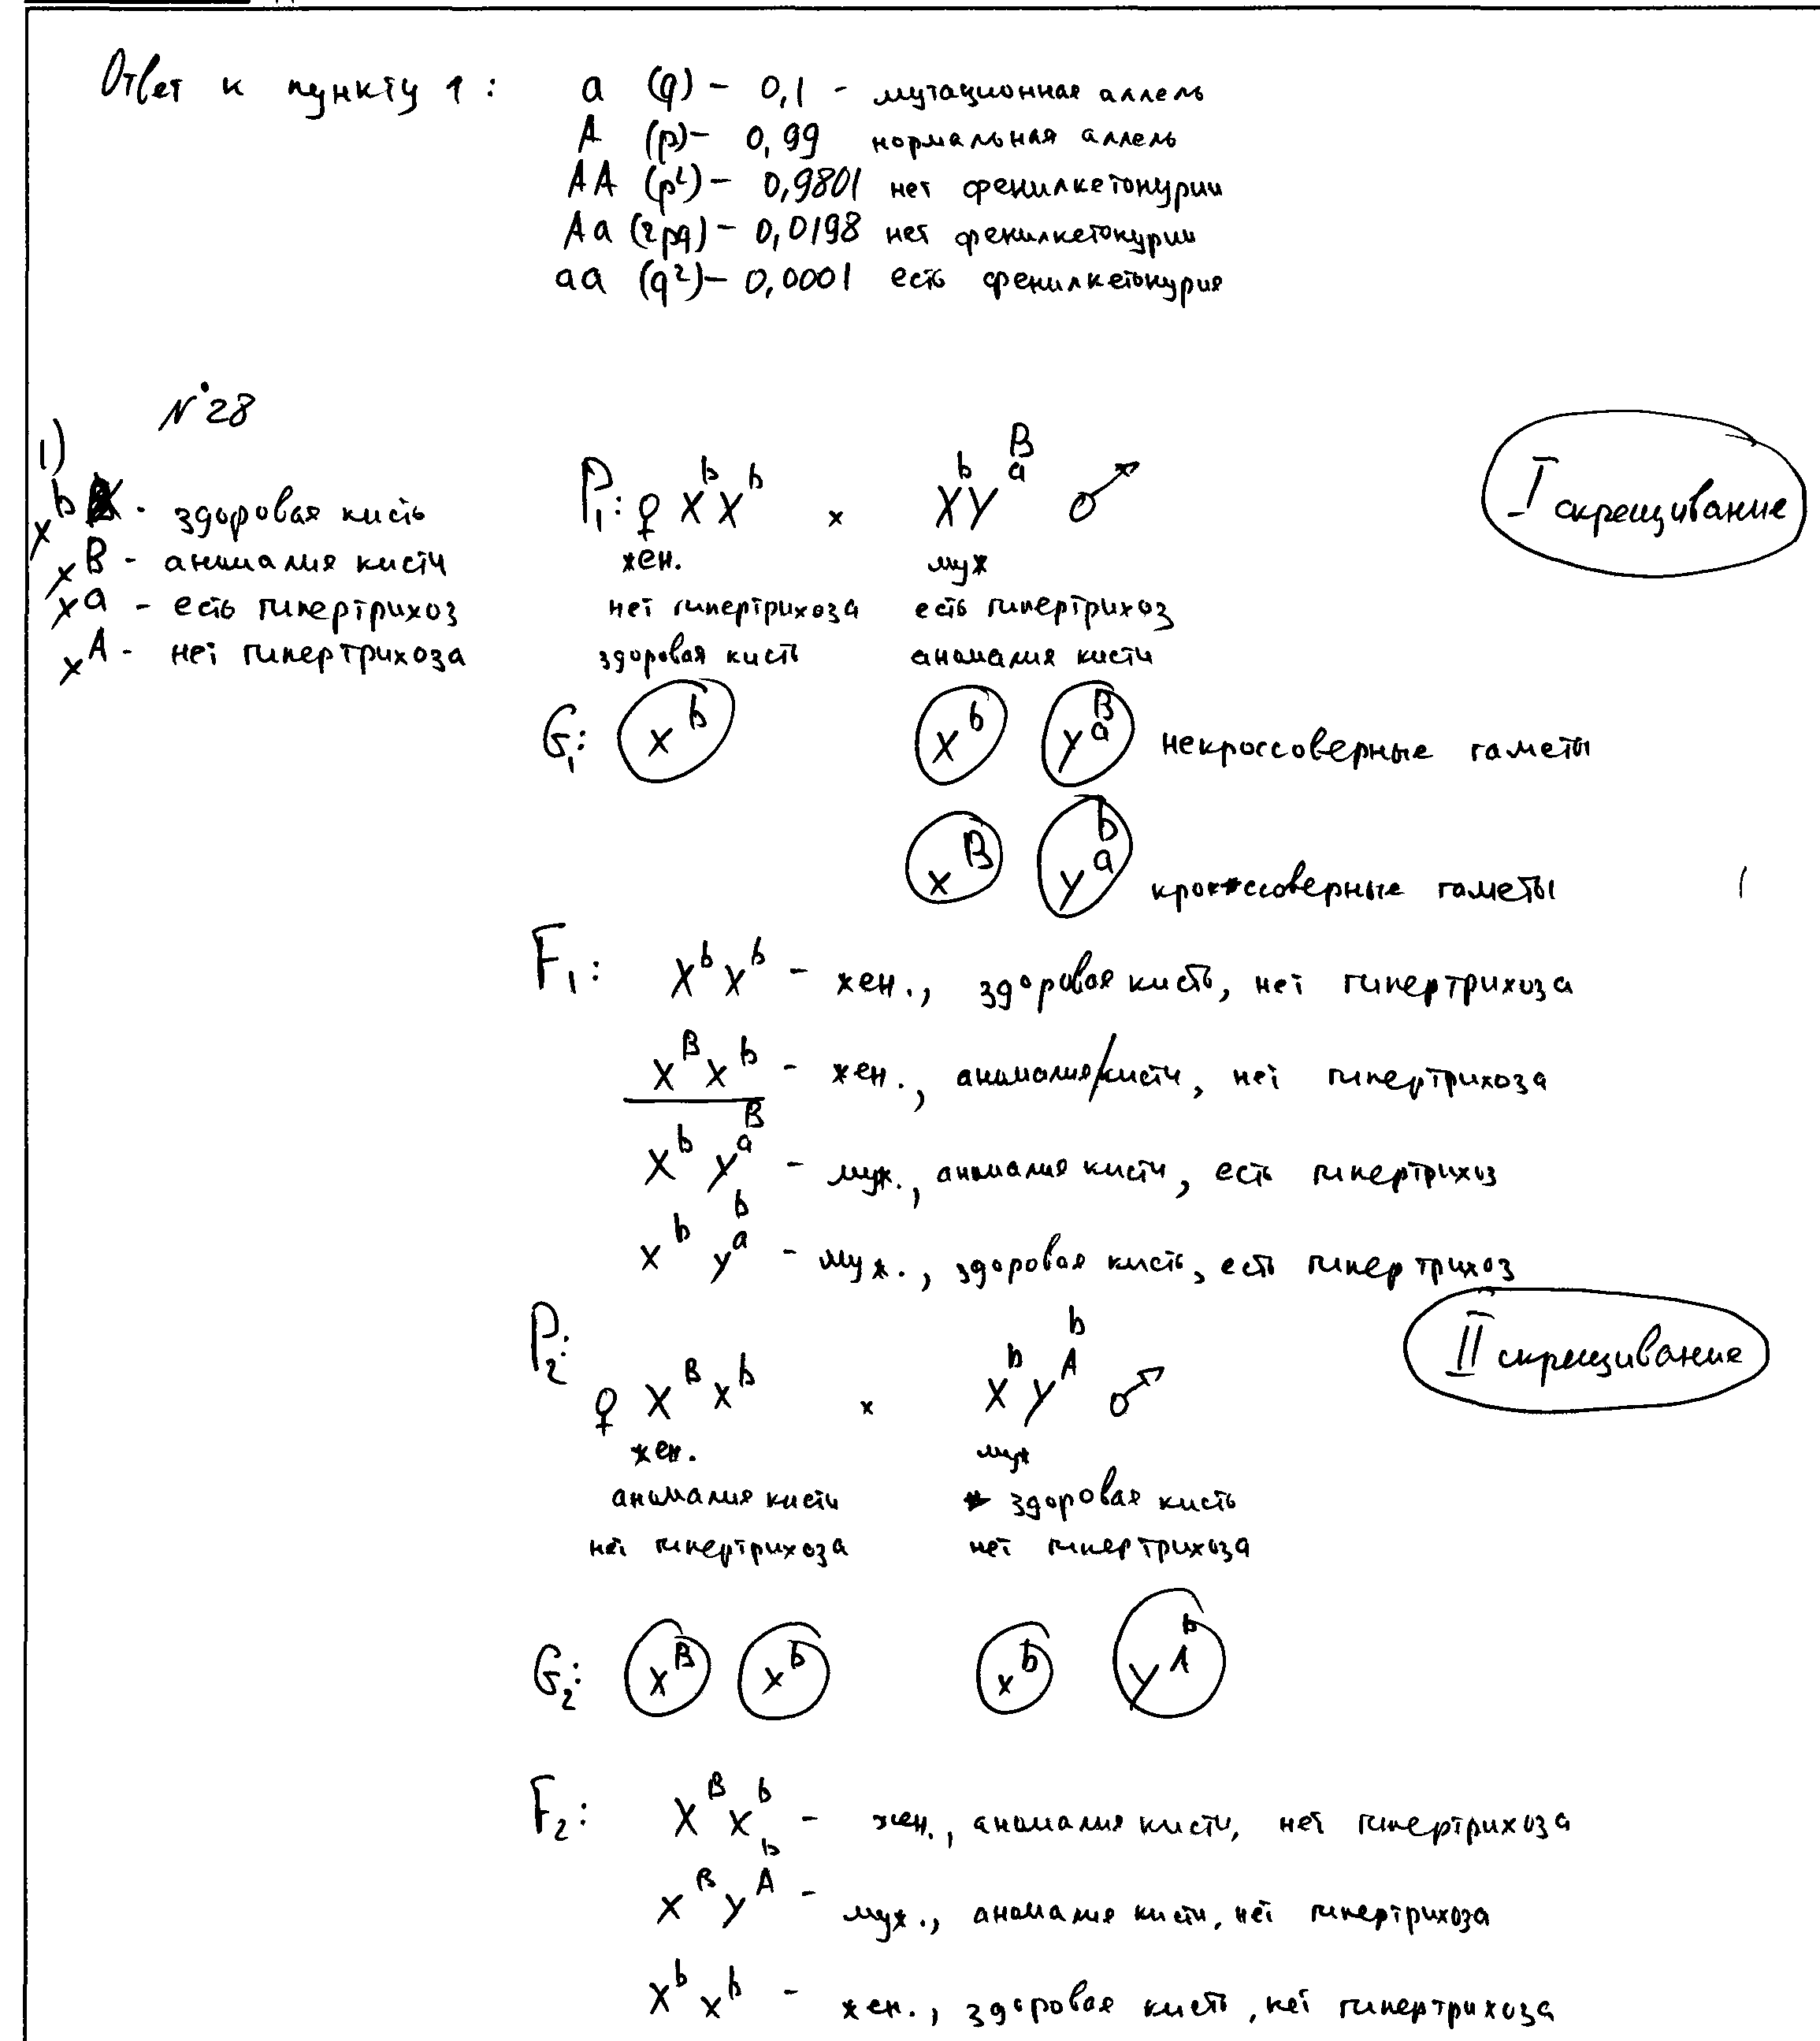 Ответ к пункту 1: a (q) – 0,1 - мутационная аллель
A (p) – 0,99 нормальная аллель
AA (p²) – 0,9801 нет фенилкетонурии
Aa (2pq) – 0,0198 нет фенилкетонурии
aa (q²) – 0,0001 есть фенилкетонурия
№28
1)
xᵇ - здоровая кисть
xᴮ - аномалия кисти
xᵃ - есть гипертрихоз
xᴬ - нет гипертрихоза
I скрещивание
P₁: ♀ XᵇXᵇ × XᵇYᵃᴮ ♂
жен. муж
нет гипертрихоза есть гипертрихоз
здоровая кисть аномалия кисти
G₁: xᵇ xᵇ yᵃᴮ некроссоверные гаметы
xᴮ yᵃᵇ кроссоверные гаметы
F₁: XᵇXᵇ – жен., здоровая кисть, нет гипертрихоза
XᴮXᵇ – жен., аномалия/кисти, нет гипертрихоза
XᵇYᵃᴮ – муж., аномалия кисти, есть гипертрихоз
XᵇYᵃᵇ – муж., здоровая кисть, есть гипертрихоз
II скрещивание
P₂: ♀ XᴮXᵇ × XᵇYᴬᵇ ♂
жен. муж
аномалия кисти здоровая кисть
нет гипертрихоза нет гипертрихоза
G₂: xᴮ xᵇ xᵇ yᴬᵇ
F₂: XᴮXᵇ – жен., аномалия кисти, нет гипертрихоза
XᴮYᴬᵇ – муж., аномалия кисти, нет гипертрихоза
XᵇXᵇ – жен., здоровая кисть, нет гипертрихоза